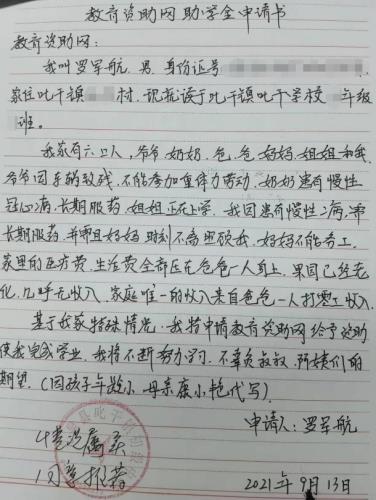 教育资助网助学金申请书
教育资助网：
我叫罗军航，男，身份证号
家住叱干镇 村，现就读于叱干镇叱干学校 年级
班。
我家有六口人，爷爷、奶奶、爸爸、妈妈、姐姐和我，
爷爷因手的致残，不能参加重体力劳动，奶奶患有慢性
冠心病，长期服药，姐姐正在上学，我因患有慢性 病，需
长期服药，并需且妈妈时刻不离 我，妈妈不能务工，
家里的医疗费、生活费全部压在爸爸一人身上，果园已经老
化，几乎无收入，家庭唯一的收入来自爸爸一人打零工收入。
基于我家特殊情况，我特申请教育资助网给予资助
使我完成学业，我将不断努力学习，不辜负叔叔、阿姨们的
期望。（因孩子年龄小，母亲康小艳代写）
申请人：罗军航
情况属实
同意推荐
2021年9月13日